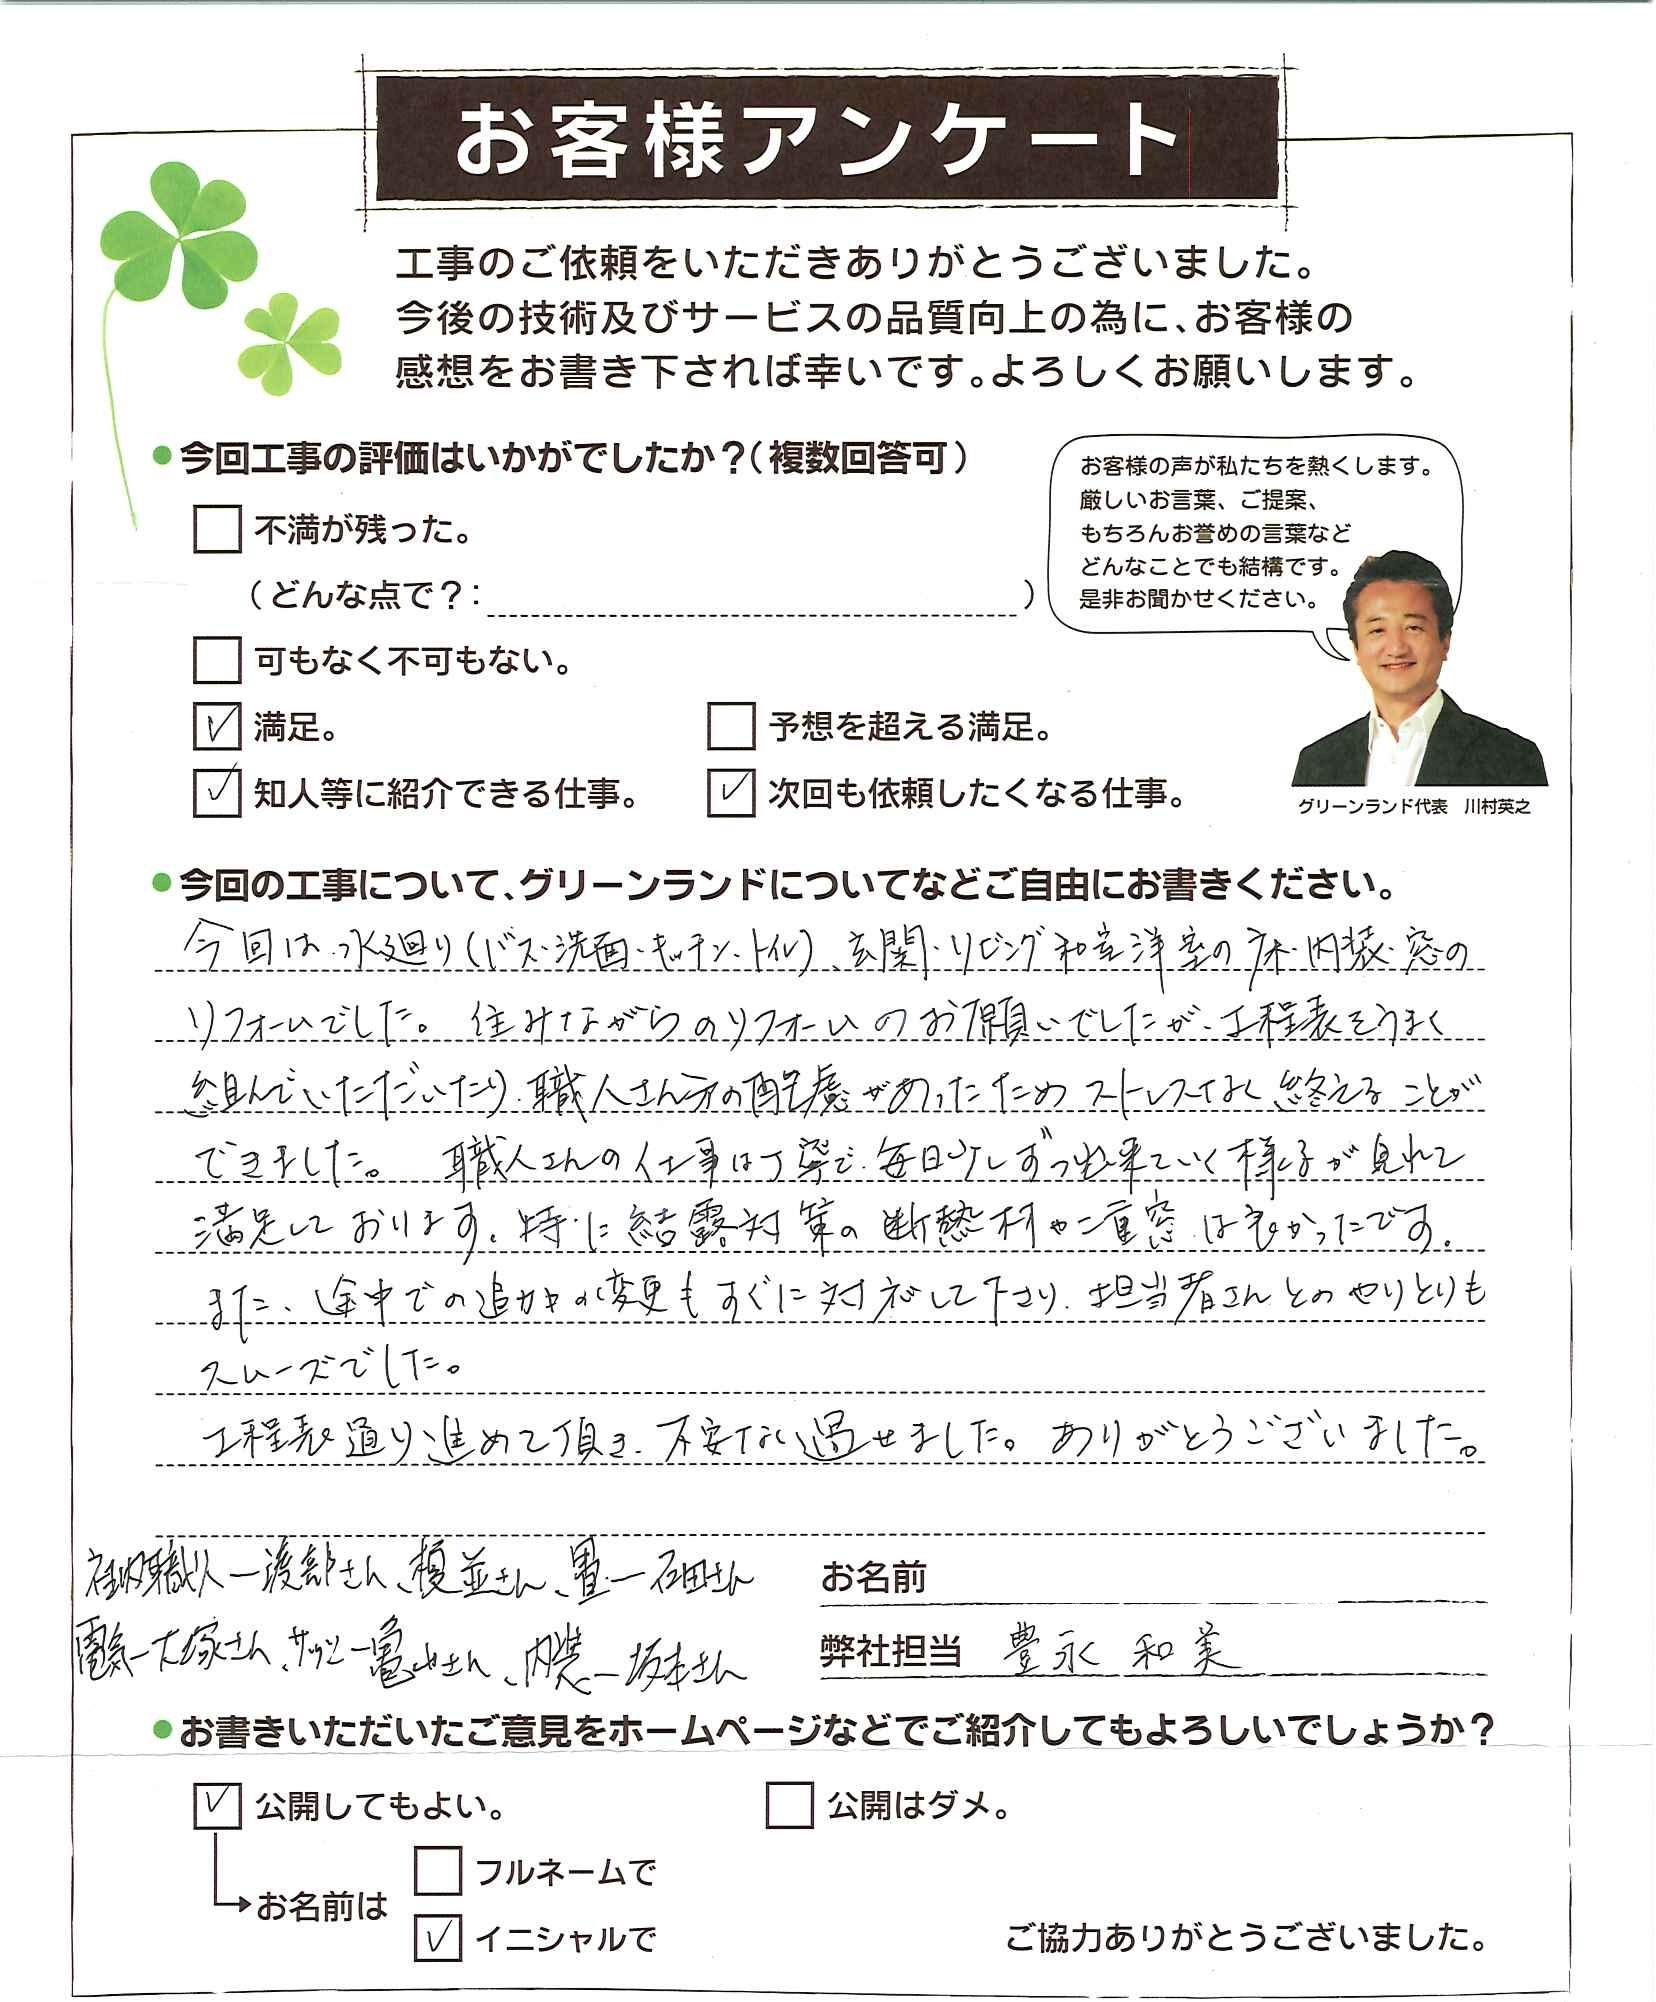 お客様アンケート
工事のご依頼をいただきありがとうございました。
今後の技術及びサービスの品質向上の為に、お客様の
感想をお書き下されば幸いです。よろしくお願いします。
今回工事の評価はいかがでしたか？（複数回答可）
不満が残った。
（どんな点で？：　）
可もなく不可もない。
満足。
予想を超える満足。
知人等に紹介できる仕事。
次回も依頼したくなる仕事。
お客様の声が私たちを熱くします。
厳しいお言葉、ご提案、
もちろんお誉めの言葉など
どんなことでも結構です。
是非お聞かせください。
グリーンランド代表　川村英之
今回の工事について、グリーンランドについてなどご自由にお書きください。
今回は、水廻り(バス・洗面・キッチン・トイレ)、玄関・リビング和室洋室の床・内装・窓の
リフォームでした。住みながらのリフォームのお願いでしたが、工程表をうまく
組んでいただいたり、職人さん方の配慮があったためストレスなく終えることが
できました。　職人さんの仕事は丁寧で、毎日少しずつ出来ていく様子が見れて
満足しております。特に結露対策の断熱材や二重窓は良かったです。
また、途中での追加の変更もすぐに対応して下さり、担当者さんとのやりとりも
スムーズでした。
工程表通り進めて頂き、不安なく過せました。ありがとうございました。
職人ー渡部さん、榎並さん、畳ー石田さん
電気ー大塚さん、サッシー亀山さん、内装ー坂本さん
お名前
弊社担当　豊永 和美
お書きいただいたご意見をホームページなどでご紹介してもよろしいでしょうか？
公開してもよい。
公開はダメ。
お名前は
フルネームで
イニシャルで
ご協力ありがとうございました。